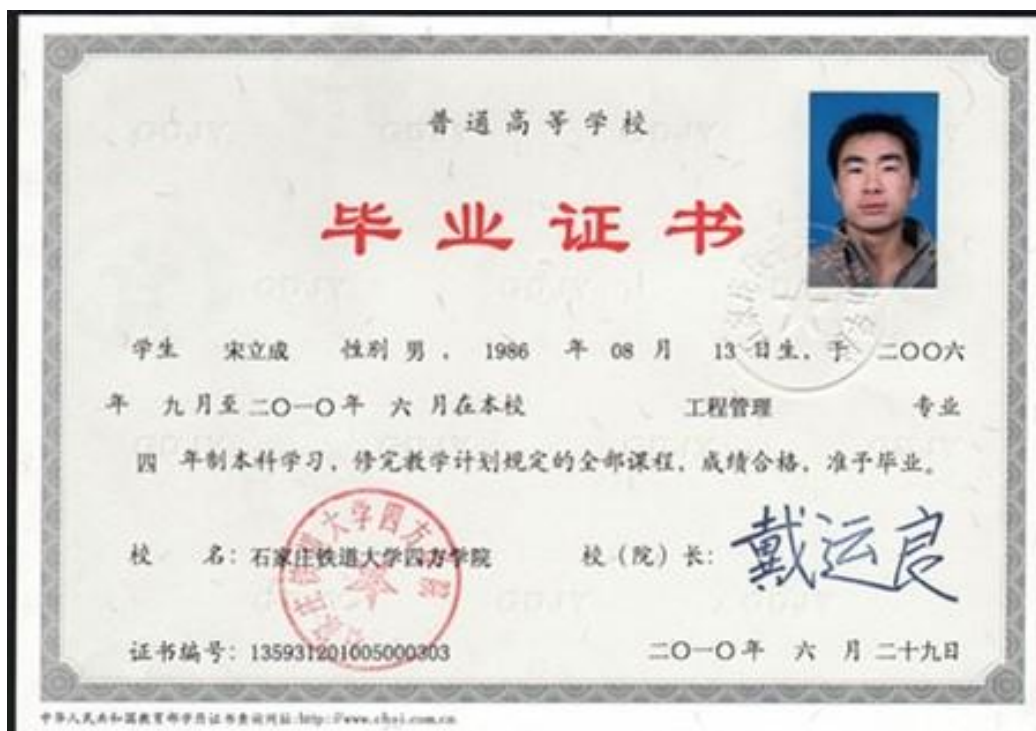 普通高等学校
毕业证书
学生 宋立成 性别 男 ， 1986 年 08 月 13 日生，于 二〇〇六
年 九 月至 二〇一〇 年 六 月在本校 工程管理 专业
四 年制本科学习，修完教学计划规定的全部课程，成绩合格，准予毕业。
校 名：石家庄铁道大学四方学院 校（院）长：戴运良
证书编号：135931201005000303 二〇一〇 年 六 月 二十九日
中华人民共和国教育部学历证书查询网址:http://www.chsi.com.cn